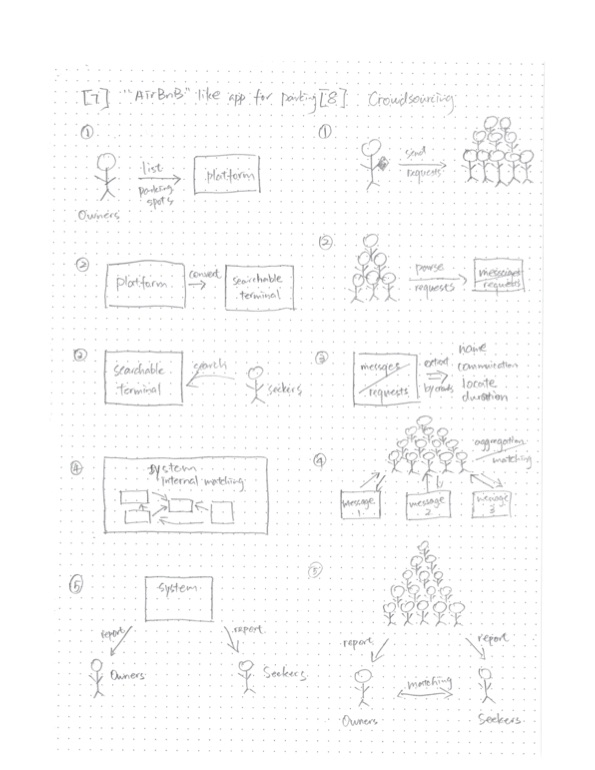 [7] "AirBnB" like app for parking
①
list
parking
spots
platform
Owners
②
platform
convert
searchable
terminal
③
searchable
terminal
search
seekers
④
system
internal matching
⑤
system
report
report
Owners
Seekers
[8] Crowdsourcing
①
send
requests
②
parse
requests
messages
requests
③
messages
requests
extract
by crowds
name
communication
locate
duration
④
aggregation
matching
message
1
message
2
message
3
⑤
report
report
matching
Owners
Seekers